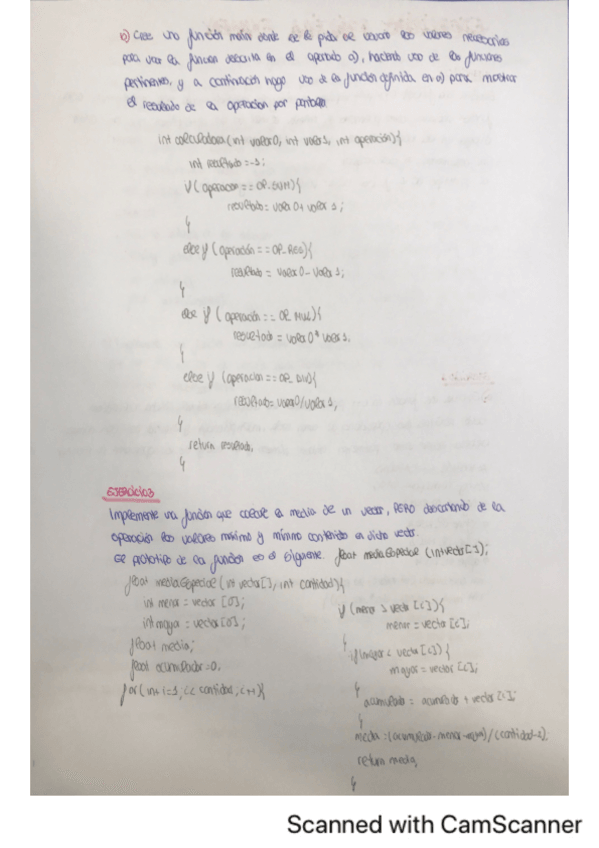 b) Cree una función main donde se le pida al usuario los valores necesarios
para usar la función descrita en el apartado a), haciendo uso de las funciones
pertinentes, y a continuación haga uso de la función definida en a) para mostrar
el resultado de la operación por pantalla
int calculadora (int valor0, int valor1, int operación){
int resultado = -1;
if (operacion == OP_SUM){
resultado = valor0 + valor1;
}
else if (operación == OP_RES){
resultado = valor0 - valor1;
}
else if (operación == OP_MUL){
resultado = valor0 * valor1;
}
else if (operacion == OP_DIV){
resultado = valor0/valor1;
}
return resultado;
}
EJERCICIO 3
Implemente una función que calcule la media de un vector, PERO descontando de la
operación los valores máximo y mínimo contenido en dicho vector.
El prototipo de la función es el siguiente. float mediaEspecial (int vector[]);
float mediaEspecial (int vector[], int cantidad){
int menor = vector [0];
int mayor = vector [0];
float media;
float acumulador = 0;
for (int i=1; i< cantidad; i++){
if (menor > vector [i]){
menor = vector [i];
}
if (mayor < vector [i]) {
mayor = vector [i];
}
acumulado = acumulado + vector [i];
}
media = (acumulado - menor - mayor) / (cantidad-2);
return media;
}
Scanned with CamScanner